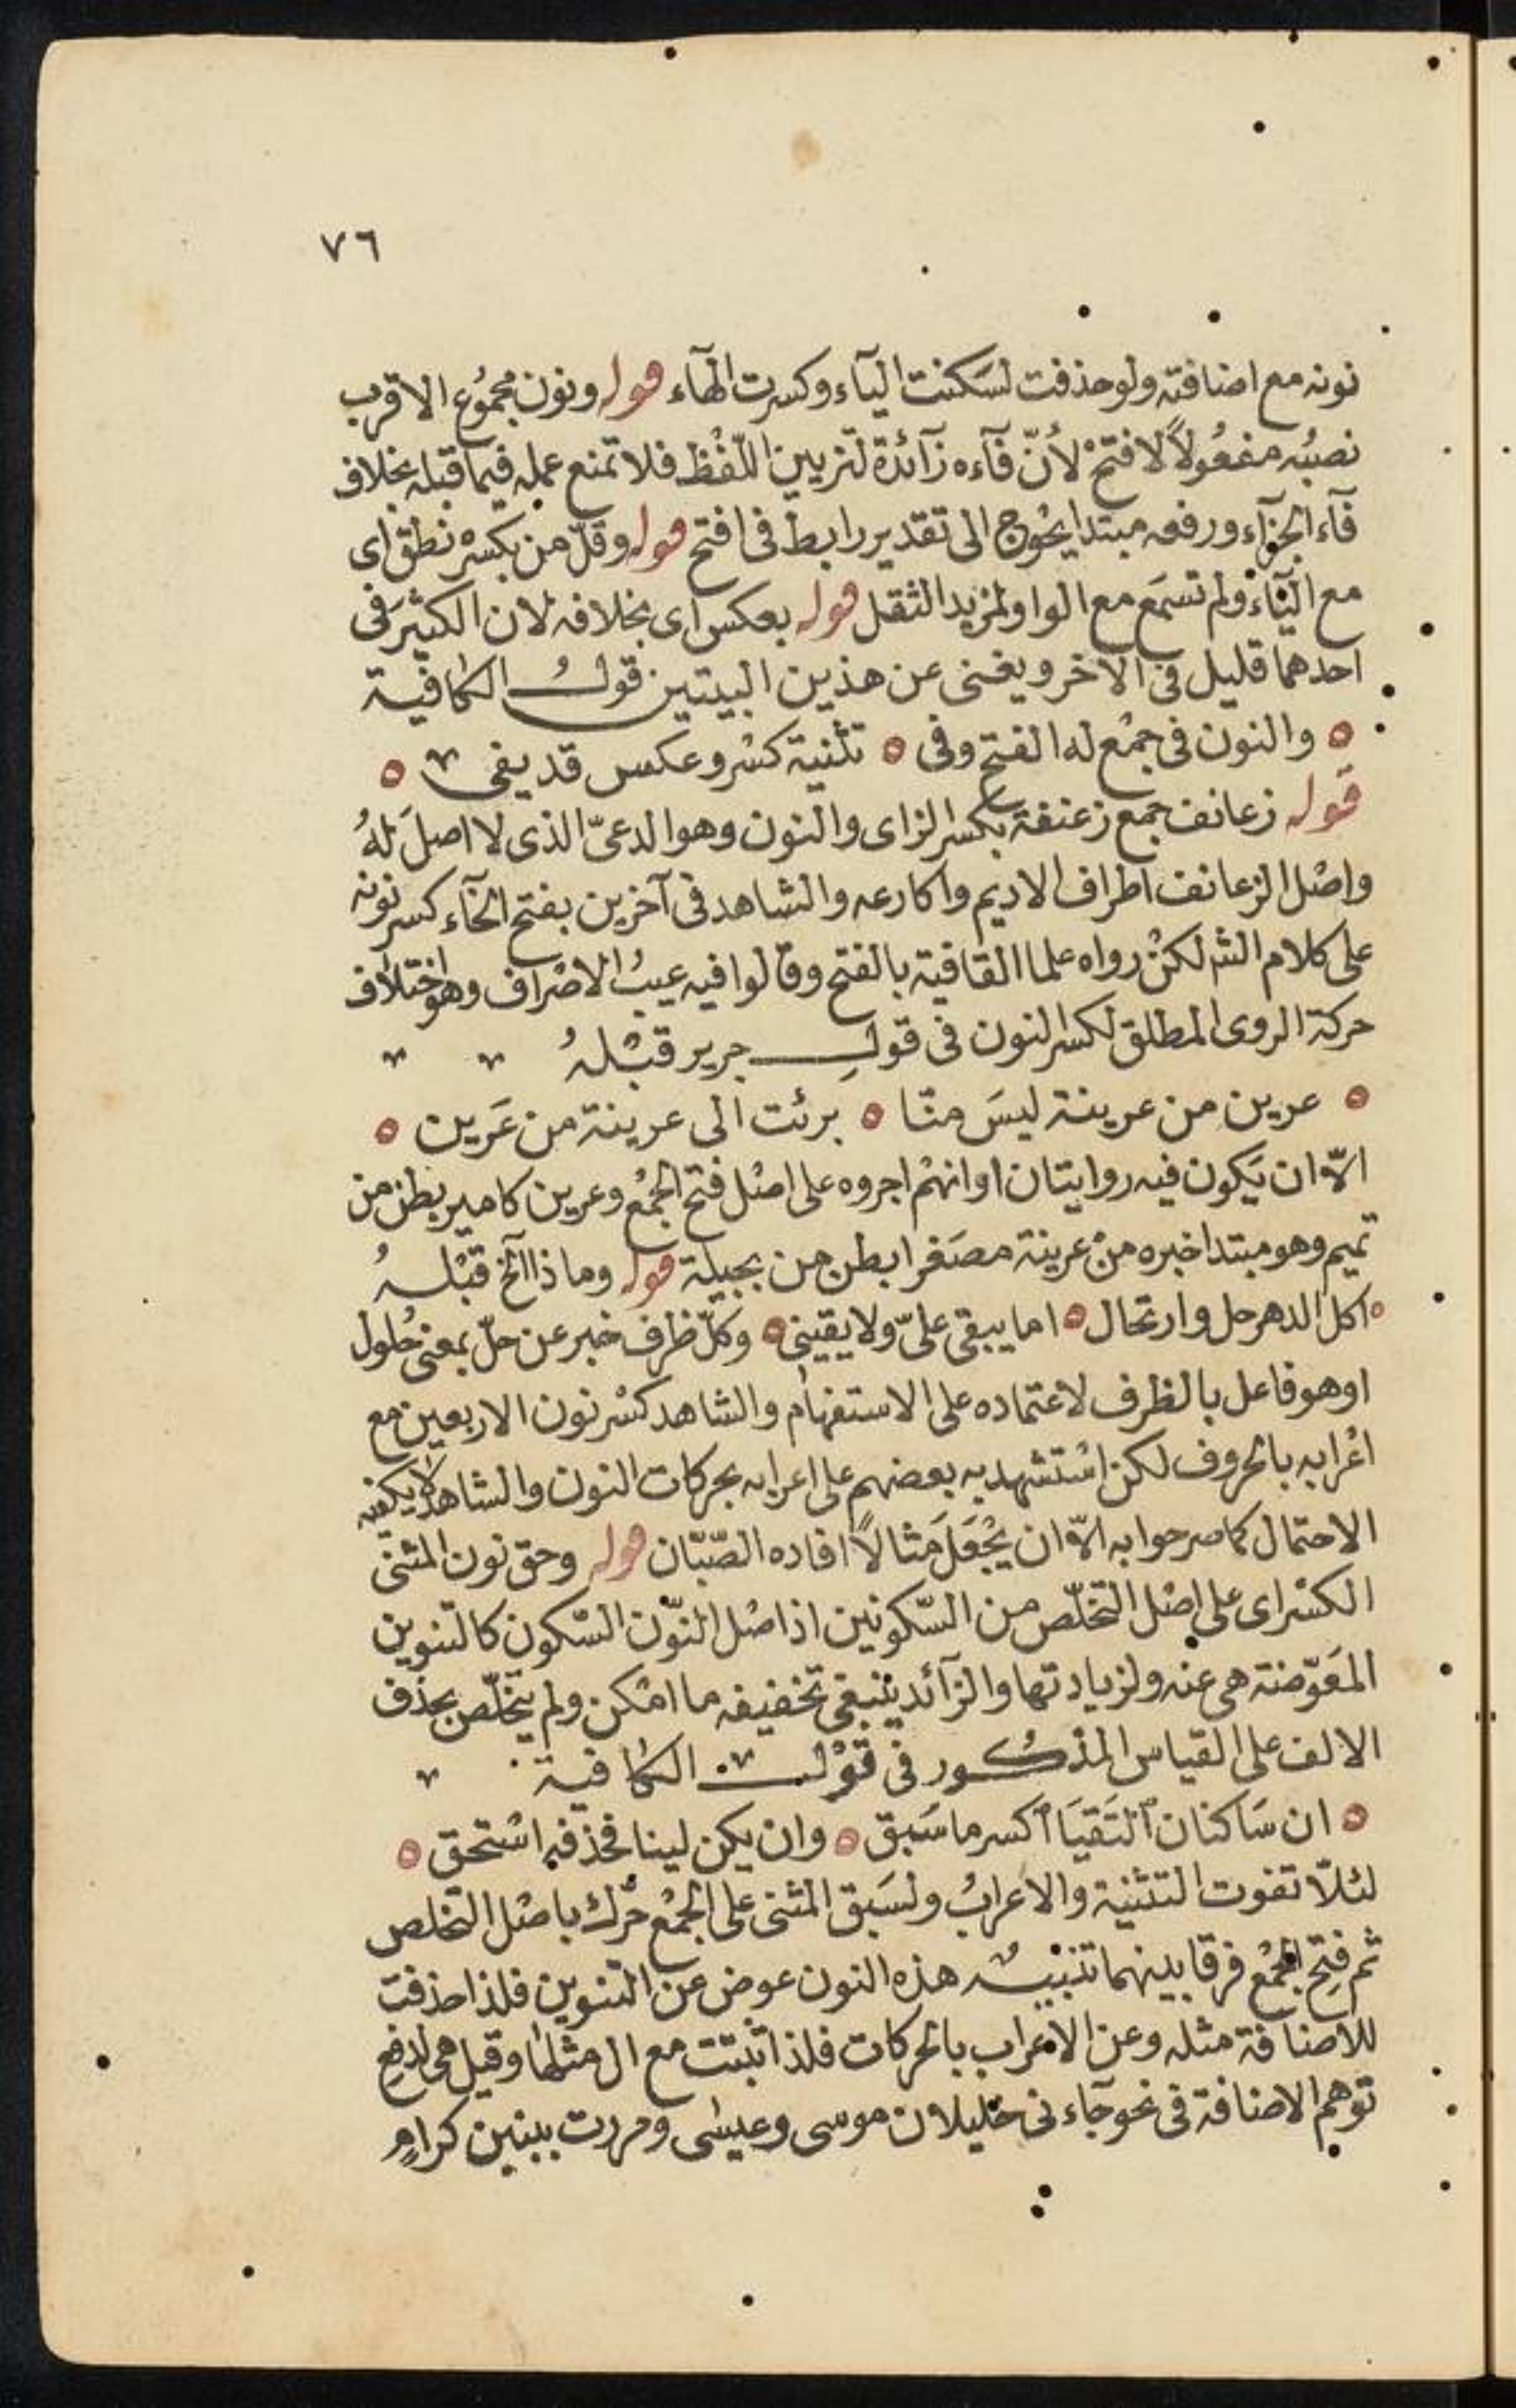 ٧٦
نونه مع اضافته ولو حذفت لسَكنت اليآء وكسرت الهآء قوله ونون مجمُوع الاقرب
نصبُه مفعُولاً لافتحْ لأنّ فآءه زآئدة لتزيين اللّفْظ فلا تمنع عمله فيما قبله بخلاف
فآء الجزآء ورفعه مبتدا يحْوج الى تقدير رابط فى افتح قوله وقلّ من بكسره نطق اى
مع اليآء ولم تسمَع مع الواو لمزيد الثقل قوله بعكس اى بخلافه لان الكثيرَ فى
احدهما قليل فى الآخر ويغنى عن هذين البيتين قولُ الكافيّة
والنون فى جمْع له الفتح وفى تثنية كسْر وعكس قد يفى
قوله زعانف جمع زعنفة بكسر الزاى والنون وهو الدعىّ الذى لا اصلَ لهُ
واصْل الزعانف اطراف الاديم واكارعه والشاهد فى آخرين بفتح الخآء كسر نونه
على كلام الشـ لكنْ رواه علما القافية بالفتح وقالوا فيه عيبُ الاصْراف وهو اختلاف
حركة الروى المطلق لكسر النون فى قولِ جرير قبْلهُ
عرين من عرينة ليسَ منّا برئت الى عرينة من عَرين
الاّ ان يَكون فيه روايتان او انهمْ اجروه على اصْل فتح الجمْع وعرين كامير بطن من
تميم وهو مبتدا خبره منْ عرينة مصَغرا بطن من بجيلة قوله وماذا الخ قبْلهُ
اكل الدهر حل وارتحال اما يبقى علىّ ولا يقينى وكلّ ظرف خبر عن حلّ بمعنى حُلول
او هو فاعل بالظرف لاعتماده على الاستفهام والشاهد كسْر نون الاربعين مع
اعْرابه بالحروف لكن اسْتشهد به بعضهم على اعرابه بحركات النون والشاهد لا يكفيه
الاحتمال كما صرحوا به الاّ ان يُجْعَلَ مَثالاً افاده الصّبّان قوله وحق نون المثنى
الكسْر اى على اصْل التخلّص من السّكونين اذ اصْل النّون السّكون كالتنوين
المعَوّضة هى عنه ولزيادتها والزآئد ينبغى تخفيفه ما امْكن ولم يتخلّص بحذف
الالف على القياس المذكور فى قوْلـ الكافية
ان سَاكنان ٱلتَقيَا ٱكسر ما سَبق وان يكن لينا فحذفه استحق
لئلاّ تفوت التثنية والاعرابُ ولسَبق المثنى على الجمْع حُرّك باصْل التخلص
ثم فتِحَ الجمْع فرقا بينهما تنبيـه هذه النون عوض عن التنوين فلذا حذفت
للاضافة مثله وعن الاعراب بالحركات فلذا ثبتت مع ال مثلها وقيل هى لدفع
توهم الاضافة فى نحو جآءنى خليلان موسى وعيسٰى ومررت ببنين كرامٍ